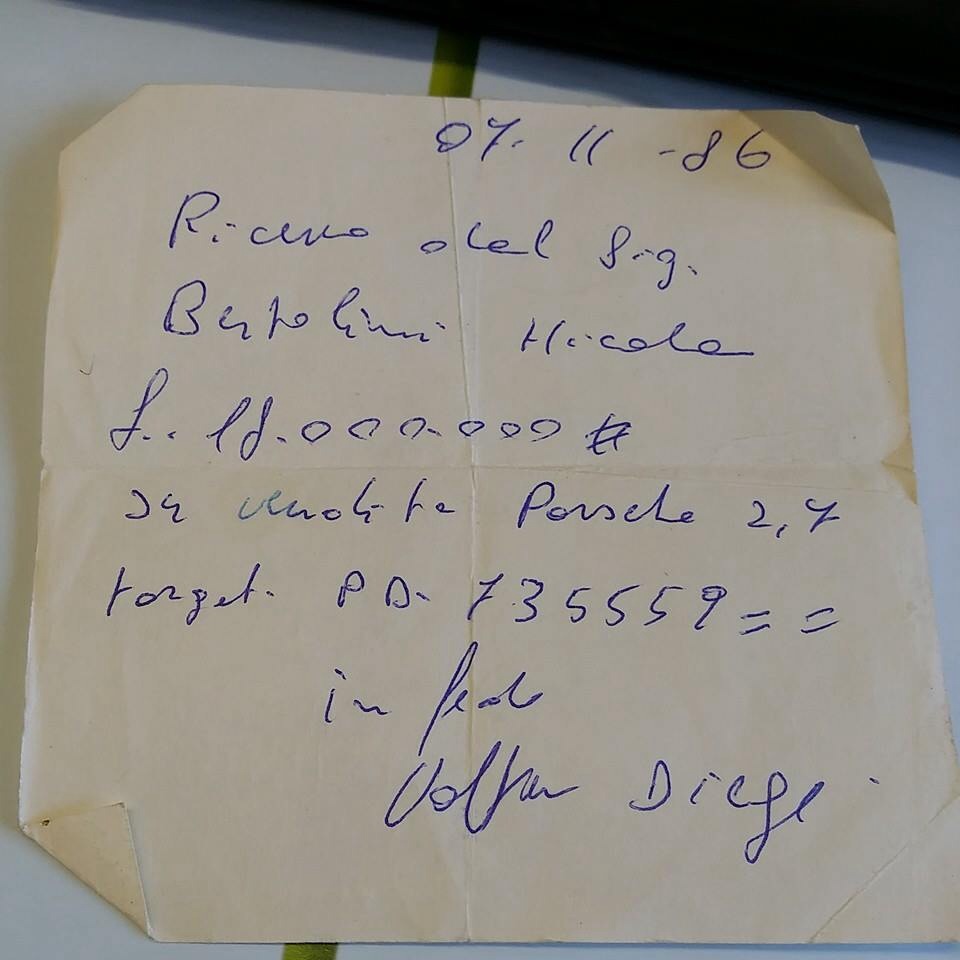 07. 11 - 86
Ricevo dal Sig.
Bertolini Nicola
£. 18.000.000 #
x vendita Porsche 2,7
targat. PD. 735559 = =
in fede
Diego